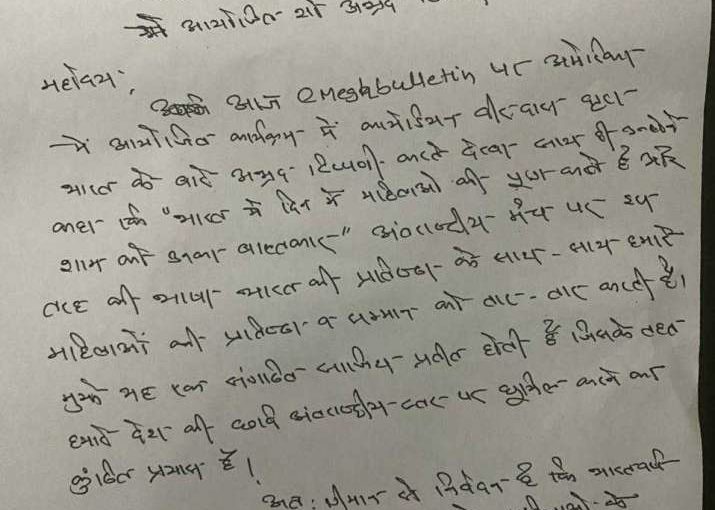 में आयोजित शो अभद्र
महोदय;
आज @Meghbulletin पर अमेरिका
में आयोजित कार्यक्रम में कामेडियन वीर दास द्वारा
भारत के बारे अभद्र टिप्पणी करते देखा साथ ही उन्होंने
कहा कि "भारत में दिन में महिलाओं की पूजा करते हैं और
शाम को उनका बालत्कार" अंतराष्ट्रीय मंच पर इस
तरह की भाषा भारत की प्रतिष्ठा के साथ-साथ हमारे
महिलाओं की प्रतिष्ठा व सम्मान को तार-तार करती है।
मुझे यह एक संगठित साजिश प्रतीत होती है जिसके तहत
हमारे देश की छवि अंतराष्ट्रीय-स्तर पर धूमिल करने का
कुंठित प्रयास है।
अत: श्रीमान से निवेदन है कि भारतवर्ष
के